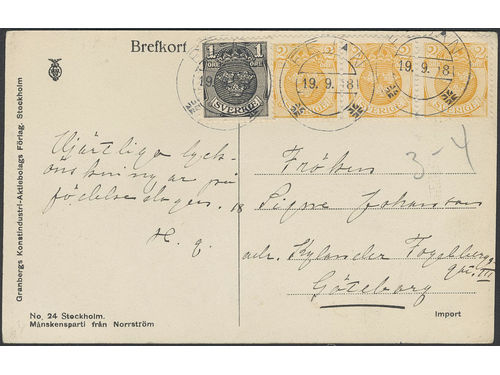 Brefkort
1 ÖRE SVERIGE
2 2 SVERIGE
2 2 SVERIGE
2 2 SVERIGE
19. 9. 8
19. 9. 8
Hjärtliga lyck-
önskningar på
födelsedagen. 18
H. G.
3-4
Fröken
Signe Johansson
adr. Kylander Fogelbergs-
III
Göteborg
Granbergs Konstindustri-Aktiebolags Förlag. Stockholm
No. 24 Stockholm.
Månskensparti från Norrström
Import